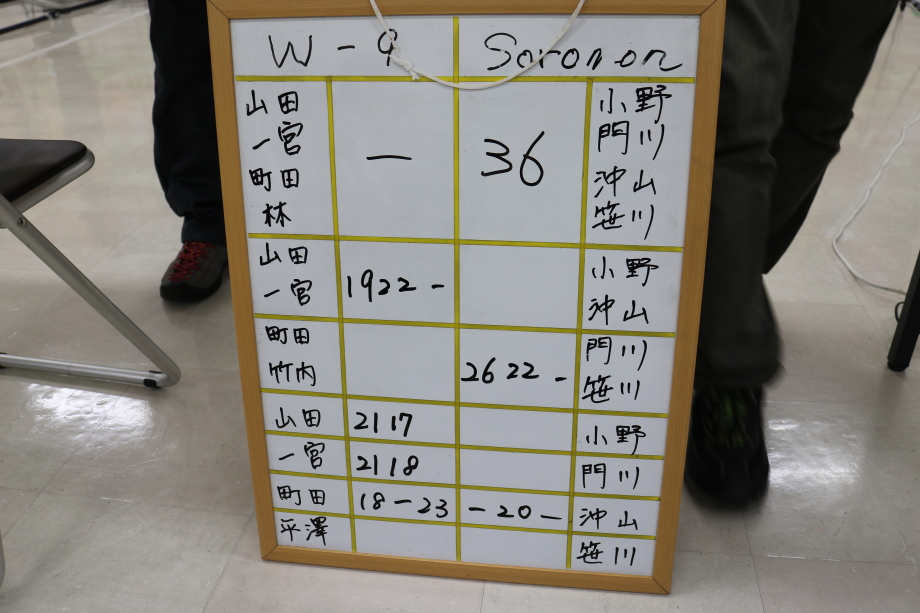 W - 9 Soromon
山田 小野
一宮 — 36 門川
町田 沖山
林 笹川
山田 小野
一宮 1922 - 沖山
町田 門川
竹内 2622 - 笹川
山田 2117 小野
一宮 2118 門川
町田 18-23 -20- 沖山
平澤 笹川